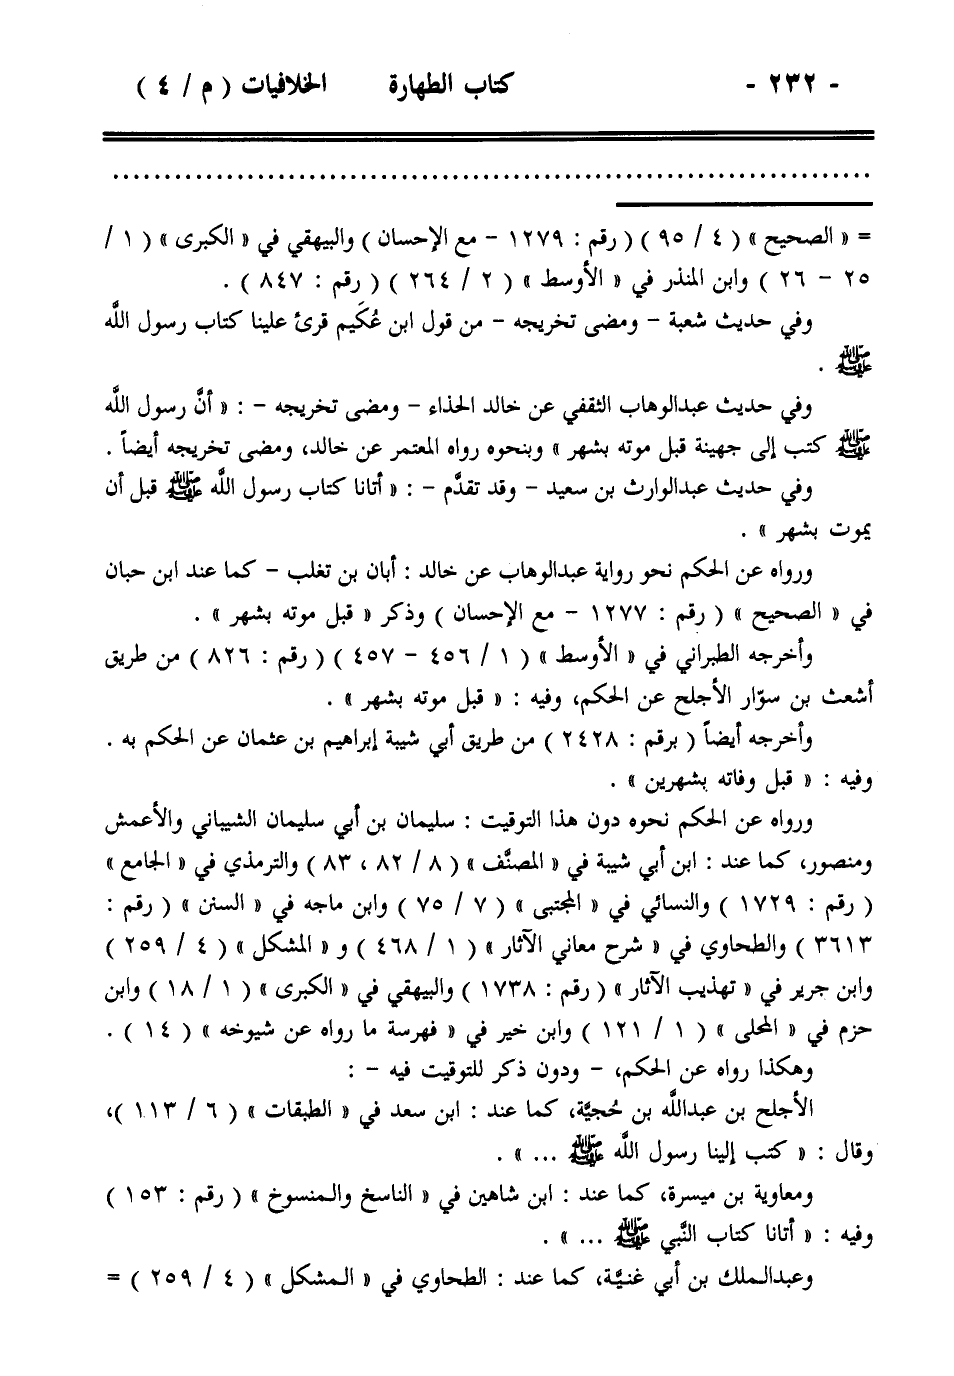 - ٢٣٢ - كتاب الطهارة الخلافيات ( م / ٤ )
= « الصحيح » ( ٤ / ٩٥ ) ( رقم : ١٢٧٩ - مع الإحسان ) والبيهقي في « الكبرى » ( ١ /
٢٥ - ٢٦ ) وابن المنذر في « الأوسط » ( ٢ / ٢٦٤ ) ( رقم : ٨٤٧ ) .
وفي حديث شعبة - ومضى تخريجه - من قول ابن عُكَيم قرئ علينا كتاب رسول اللَّه
ﷺ .
وفي حديث عبدالوهاب الثقفي عن خالد الحذاء - ومضى تخريجه - : « أنَّ رسول اللَّه
ﷺ كتب إلى جهينة قبل موته بشهر » وبنحوه رواه المعتمر عن خالد، ومضى تخريجه أيضاً .
وفي حديث عبدالوارث بن سعيد - وقد تقدَّم - : « أتانا كتاب رسول اللَّه ﷺ قبل أن
يموت بشهر » .
ورواه عن الحكم نحو رواية عبدالوهاب عن خالد : أبان بن تغلب - كما عند ابن حبان
في « الصحيح » ( رقم : ١٢٧٧ - مع الإحسان ) وذكر « قبل موته بشهر » .
وأخرجه الطبراني في « الأوسط » ( ١ / ٤٥٦ - ٤٥٧ ) ( رقم : ٨٢٦ ) من طريق
أشعث بن سوّار الأجلح عن الحكم، وفيه : « قبل موته بشهر » .
وأخرجه أيضاً ( برقم : ٢٤٢٨ ) من طريق أبي شيبة إبراهيم بن عثمان عن الحكم به .
وفيه : « قبل وفاته بشهرين » .
ورواه عن الحكم نحوه دون هذا التوقيت : سليمان بن أبي سليمان الشيباني والأعمش
ومنصور، كما عند : ابن أبي شيبة في « المصنَّف » ( ٨ / ٨٢ ، ٨٣ ) والترمذي في « الجامع »
( رقم : ١٧٢٩ ) والنسائي في « المجتبى » ( ٧ / ٧٥ ) وابن ماجه في « السنن » ( رقم :
٣٦١٣ ) والطحاوي في « شرح معاني الآثار » ( ١ / ٤٦٨ ) و « المشكل » ( ٤ / ٢٥٩ )
وابن جرير في « تهذيب الآثار » ( رقم : ١٧٣٨ ) والبيهقي في « الكبرى » ( ١ / ١٨ ) وابن
حزم في « المحلى » ( ١ / ١٢١ ) وابن خير في « فهرسة ما رواه عن شيوخه » ( ١٤ ) .
وهكذا رواه عن الحكم، - ودون ذكر للتوقيت فيه - :
الأجلح بن عبداللَّه بن حُجيَّة، كما عند : ابن سعد في « الطبقات » ( ٦ / ١١٣ )،
وقال : « كتب إلينا رسول اللَّه ﷺ ... » .
ومعاوية بن ميسرة، كما عند : ابن شاهين في « الناسخ والمنسوخ » ( رقم : ١٥٣ )
وفيه : « أتانا كتاب النَّبي ﷺ ... » .
وعبدالملك بن أبي غنيَّة، كما عند : الطحاوي في « المشكل » ( ٤ / ٢٥٩ ) =